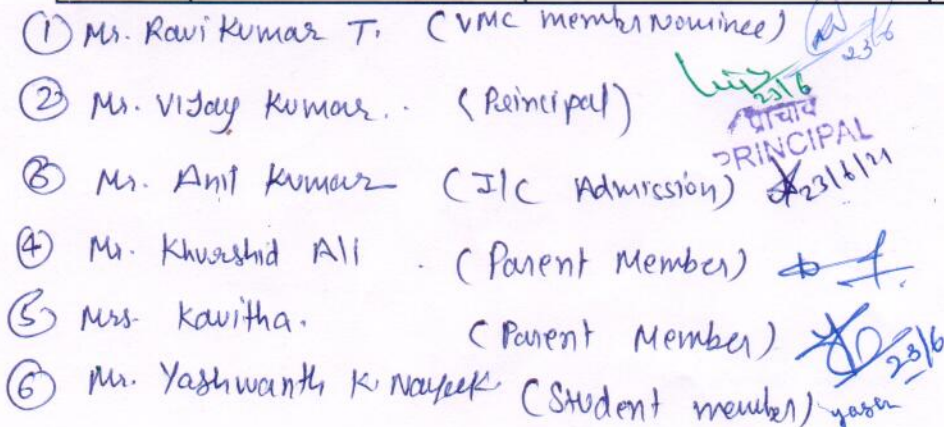 ① Mr. Ravi Kumar T. (VMC member Nominee) 23/6
② Mr. Vijay Kumar. (Principal) 23/6
प्राचार्य
PRINCIPAL
③ Mr. Anil Kumar (I/C Admission) 23/6/21
④ Mr. Khurshid Ali . (Parent Member)
⑤ Mrs. Kavitha. (Parent Member) 23/6
⑥ Mr. Yashwanth K. Nayeek (Student member)